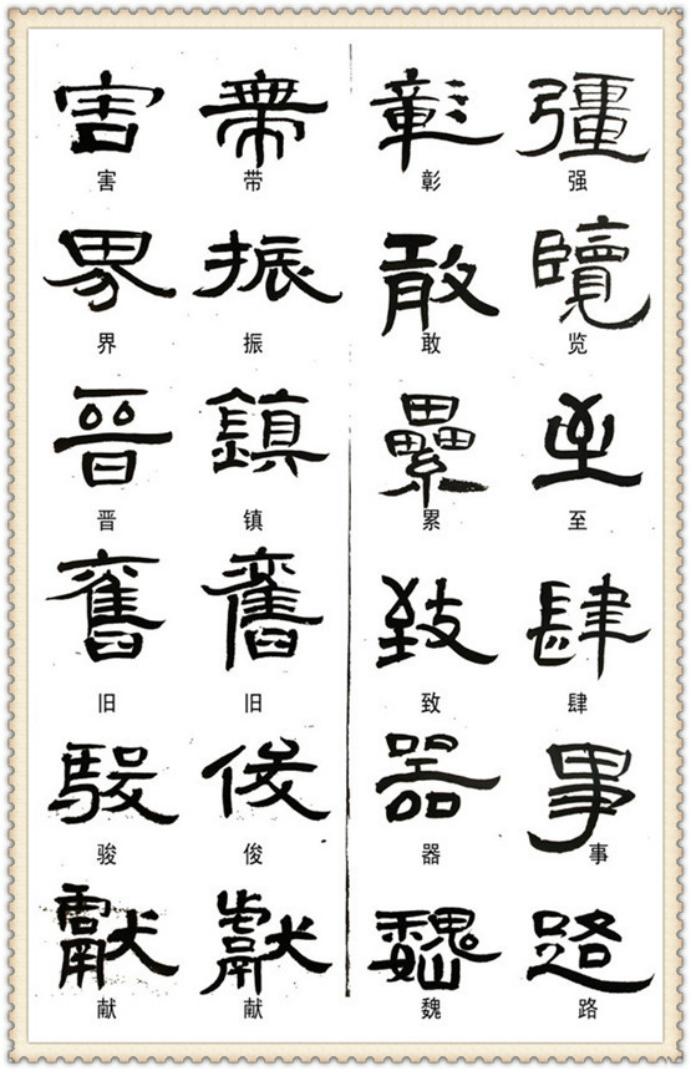 害 帶 彰 彊
害 带 彰 强
界 振 敢 覽
界 振 敢 览
晉 鎮 纍 至
晋 镇 累 至
舊 舊 致 肆
旧 旧 致 肆
駿 俊 器 事
骏 俊 器 事
獻 獻 魏 路
献 献 魏 路